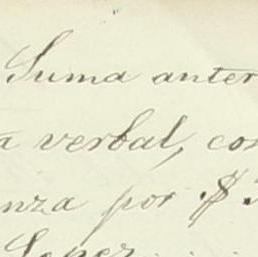 Suma anter
a verbal, con
nza por $
Lopez . . . .